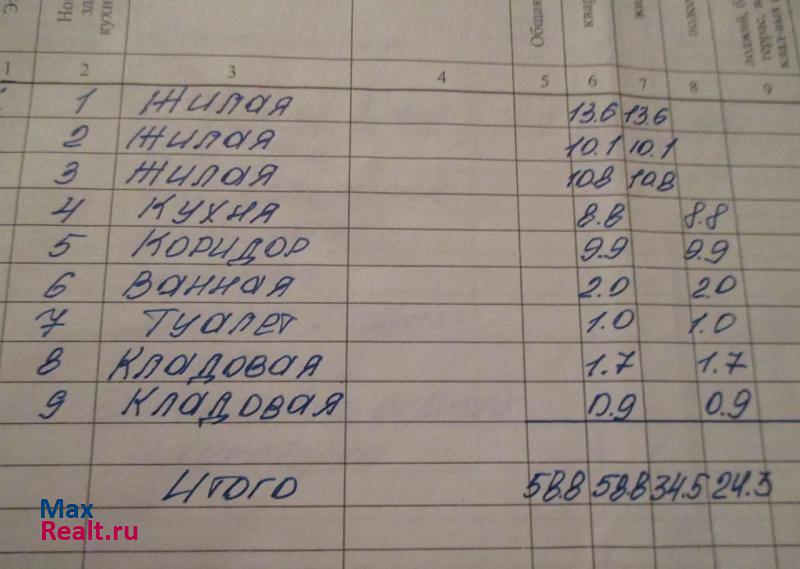 Общая
1 2 3 4 5 6 7 8 9
1 Жилая 13.6 13.6
2 Жилая 10.1 10.1
3 Жилая 10.8 10.8
4 Кухня 8.8 8.8
5 Коридор 9.9 9.9
6 Ванная 2.0 2.0
7 Туалет 1.0 1.0
8 Кладовая 1.7 1.7
9 Кладовая 0.9 0.9
Итого 58.8 58.8 34.5 24.3
Max
Realt.ru